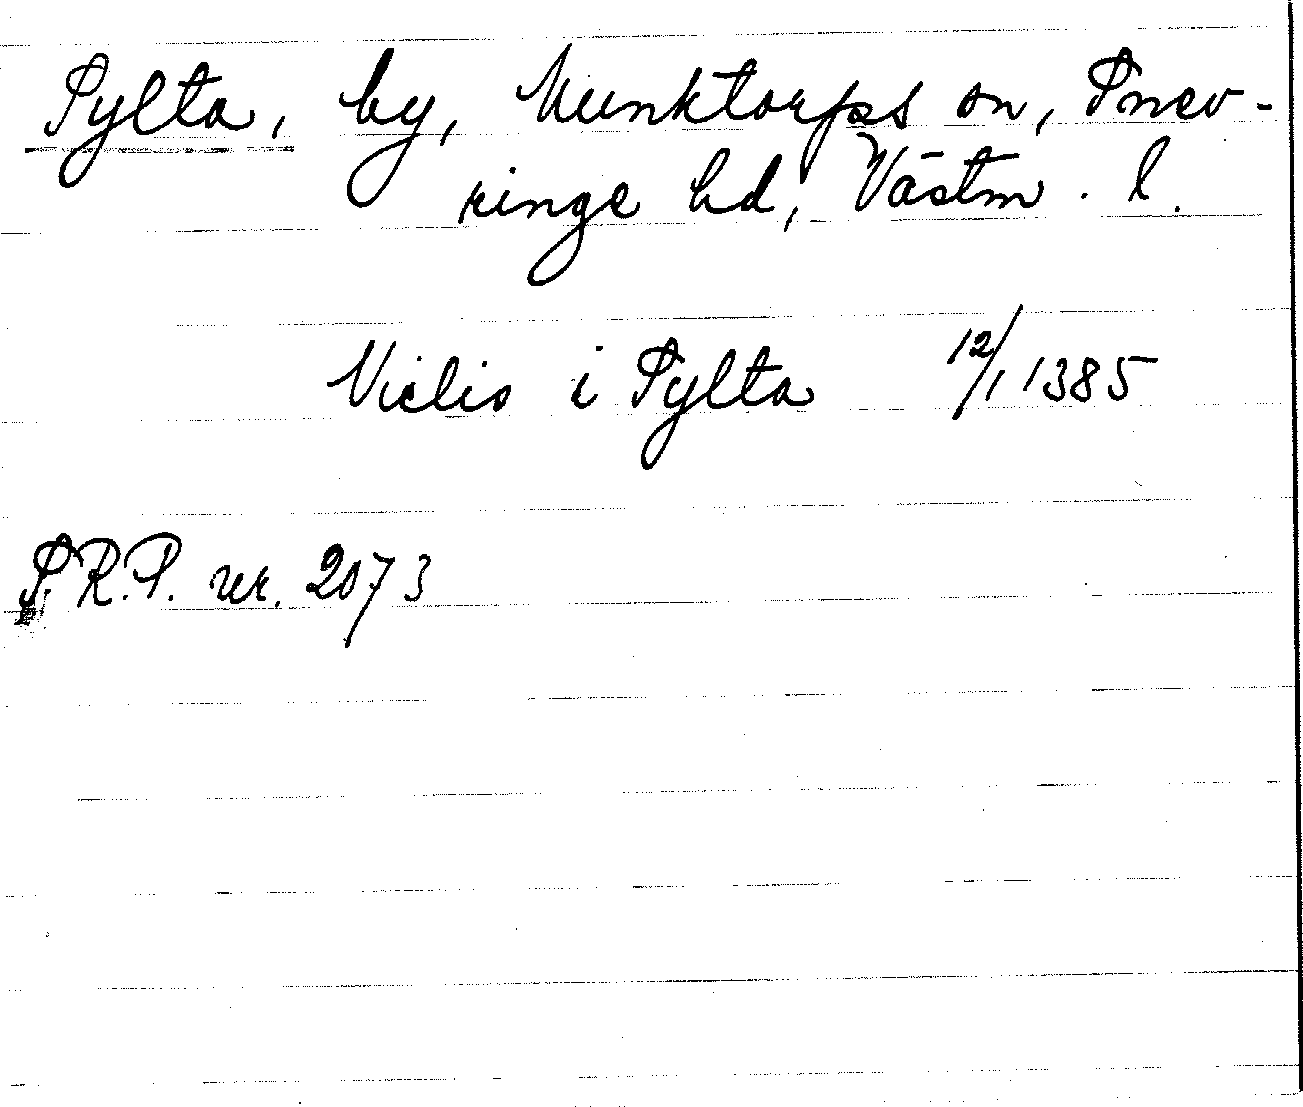 Sylta, by, Munktorps sn, Snev-
ringe hd, Västm. l.
Niclis i Sylta 12/1 1385
S.R.P. nr. 2073